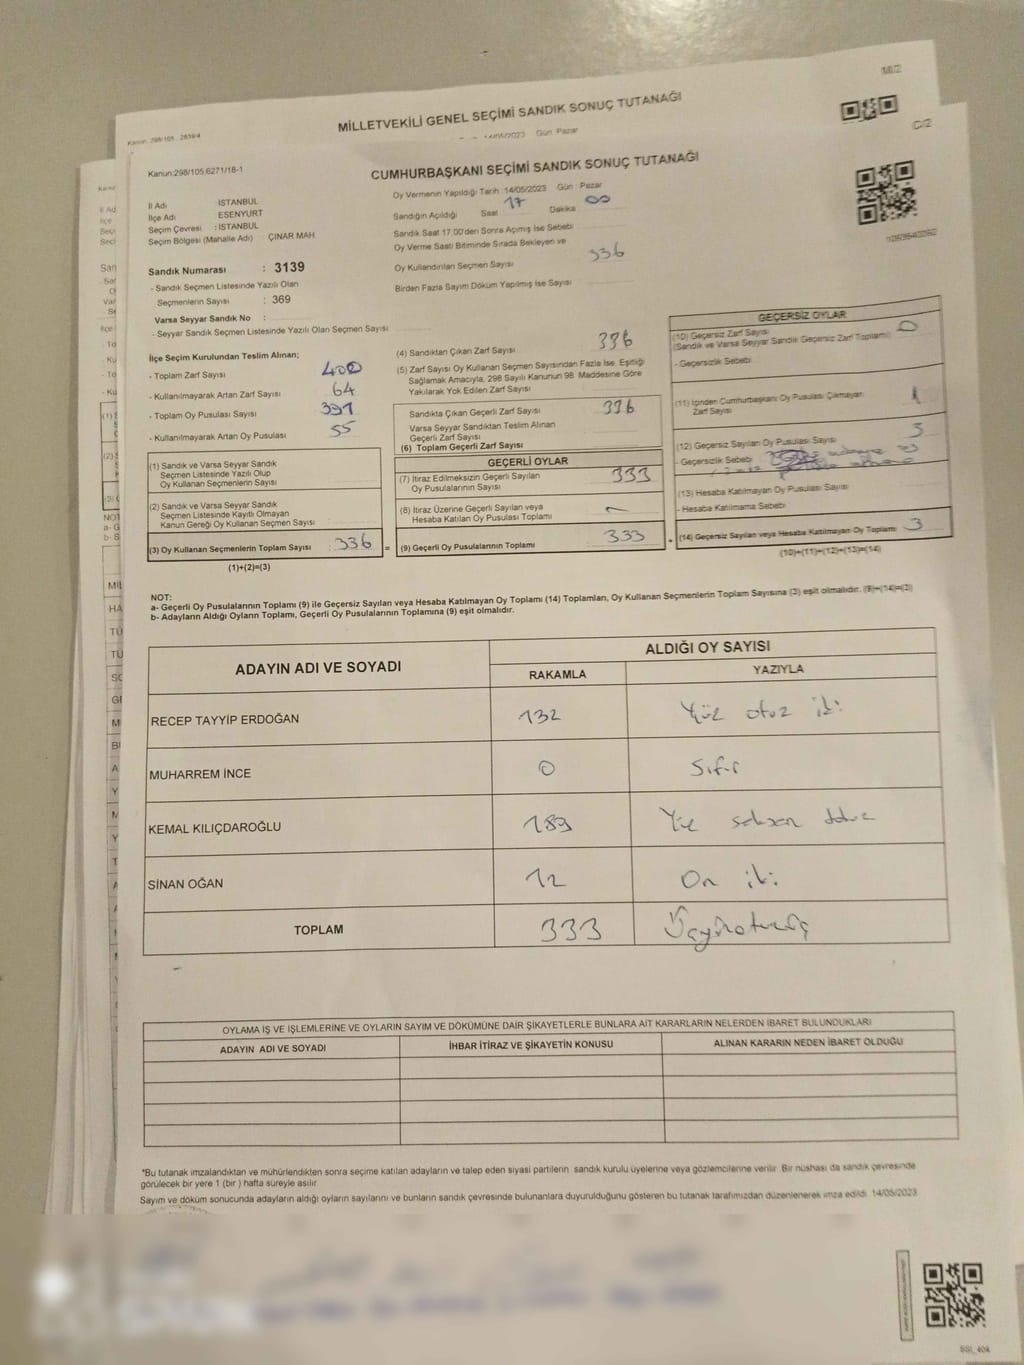 18/2
MİLLETVEKİLİ GENEL SEÇİMİ SANDIK SONUÇ TUTANAĞI
14/05/2023 Gün: Pazar
C/2
Kanun:298/105,6271/18-1
CUMHURBAŞKANI SEÇİMİ SANDIK SONUÇ TUTANAĞI
İl Adı : İSTANBUL
İlçe Adı : ESENYURT
Seçim Çevresi : İSTANBUL
Seçim Bölgesi (Mahalle Adı) : ÇINAR MAH.
Sandık Numarası : 3139
- Sandık Seçmen Listesinde Yazılı Olan
Seçmenlerin Sayısı : 369
Varsa Seyyar Sandık No :
- Seyyar Sandık Seçmen Listesinde Yazılı Olan Seçmen Sayısı
Oy Vermenin Yapıldığı Tarih : 14/05/2023 Gün : Pazar
Sandığın Açıldığı Saat 17 Dakika 00
Sandık Saat 17.00'den Sonra Açılmış İse Sebebi
Oy Verme Saati Bitiminde Sırada Bekleyen ve
Oy Kullandırılan Seçmen Sayısı 336
Birden Fazla Sayım Döküm Yapılmış İse Sayısı
İlçe Seçim Kurulundan Teslim Alınan;
- Toplam Zarf Sayısı 400
- Kullanılmayarak Artan Zarf Sayısı 64
- Toplam Oy Pusulası Sayısı 391
- Kullanılmayarak Artan Oy Pusulası 55
(1) Sandık ve Varsa Seyyar Sandık
Seçmen Listesinde Yazılı Olup
Oy Kullanan Seçmenlerin Sayısı
(2) Sandık ve Varsa Seyyar Sandık
Seçmen Listesinde Kayıtlı Olmayan
Kanun Gereği Oy Kullanan Seçmen Sayısı :
(3) Oy Kullanan Seçmenlerin Toplam Sayısı : 336
(1)+(2)=(3)
(4) Sandıktan Çıkan Zarf Sayısı 336
(5) Zarf Sayısı Oy Kullanan Seçmen Sayısından Fazla İse, Eşitliği
Sağlamak Amacıyla, 298 Sayılı Kanunun 98. Maddesine Göre
Yakılarak Yok Edilen Zarf Sayısı
Sandıkta Çıkan Geçerli Zarf Sayısı 336
Varsa Seyyar Sandıktan Teslim Alınan
Geçerli Zarf Sayısı
(6) Toplam Geçerli Zarf Sayısı
GEÇERLİ OYLAR
(7) İtiraz Edilmeksizin Geçerli Sayılan
Oy Pusulalarının Sayısı 333
(8) İtiraz Üzerine Geçerli Sayılan veya
Hesaba Katılan Oy Pusulası Toplamı
= (9) Geçerli Oy Pusulalarının Toplamı 333
GEÇERSİZ OYLAR
(10) Geçersiz Zarf Sayısı
(Sandık ve Varsa Seyyar Sandık Geçersiz Zarf Toplamı) 0
- Geçersizlik Sebebi
(11) İçinden Cumhurbaşkanı Oy Pusulası Çıkmayan
Zarf Sayısı
(12) Geçersiz Sayılan Oy Pusulası Sayısı 3
- Geçersizlik Sebebi
(13) Hesaba Katılmayan Oy Pusulası Sayısı
- Hesaba Katılmama Sebebi
+ (14) Geçersiz Sayılan veya Hesaba Katılmayan Oy Toplamı 3
(10)+(11)+(12)+(13)=(14)
NOT:
a- Geçerli Oy Pusulalarının Toplamı (9) ile Geçersiz Sayılan veya Hesaba Katılmayan Oy Toplamı (14) Toplamları, Oy Kullanan Seçmenlerin Toplam Sayısına (3) eşit olmalıdır. (9)+(14)=(3)
b- Adayların Aldığı Oyların Toplamı, Geçerli Oy Pusulalarının Toplamına (9) eşit olmalıdır.
ADAYIN ADI VE SOYADI
ALDIĞI OY SAYISI
RAKAMLA YAZIYLA
RECEP TAYYİP ERDOĞAN 132 Yüz otuz iki
MUHARREM İNCE 0 Sıfır
KEMAL KILIÇDAROĞLU 189 Yüz seksen dokuz
SİNAN OĞAN 12 On iki
TOPLAM 333 Üçyüzotuzüç
OYLAMA İŞ VE İŞLEMLERİNE VE OYLARIN SAYIM VE DÖKÜMÜNE DAİR ŞİKAYETLERLE BUNLARA AİT KARARLARIN NELERDEN İBARET BULUNDUKLARI
ADAYIN ADI VE SOYADI İHBAR İTİRAZ VE ŞİKAYETİN KONUSU ALINAN KARARIN NEDEN İBARET OLDUĞU
*Bu tutanak imzalandıktan ve mühürlendikten sonra seçime katılan adayların ve talep eden siyasi partilerin sandık kurulu üyelerine veya gözlemcilerine verilir. Bir nüshası da sandık çevresinde
görülecek bir yere 1 (bir) hafta süreyle asılır.
Sayım ve döküm sonucunda adayların aldığı oyların sayılarını ve bunların sandık çevresinde bulunanlara duyurulduğunu gösteren bu tutanak tarafımızdan düzenlenerek imza edildi. 14/05/2023